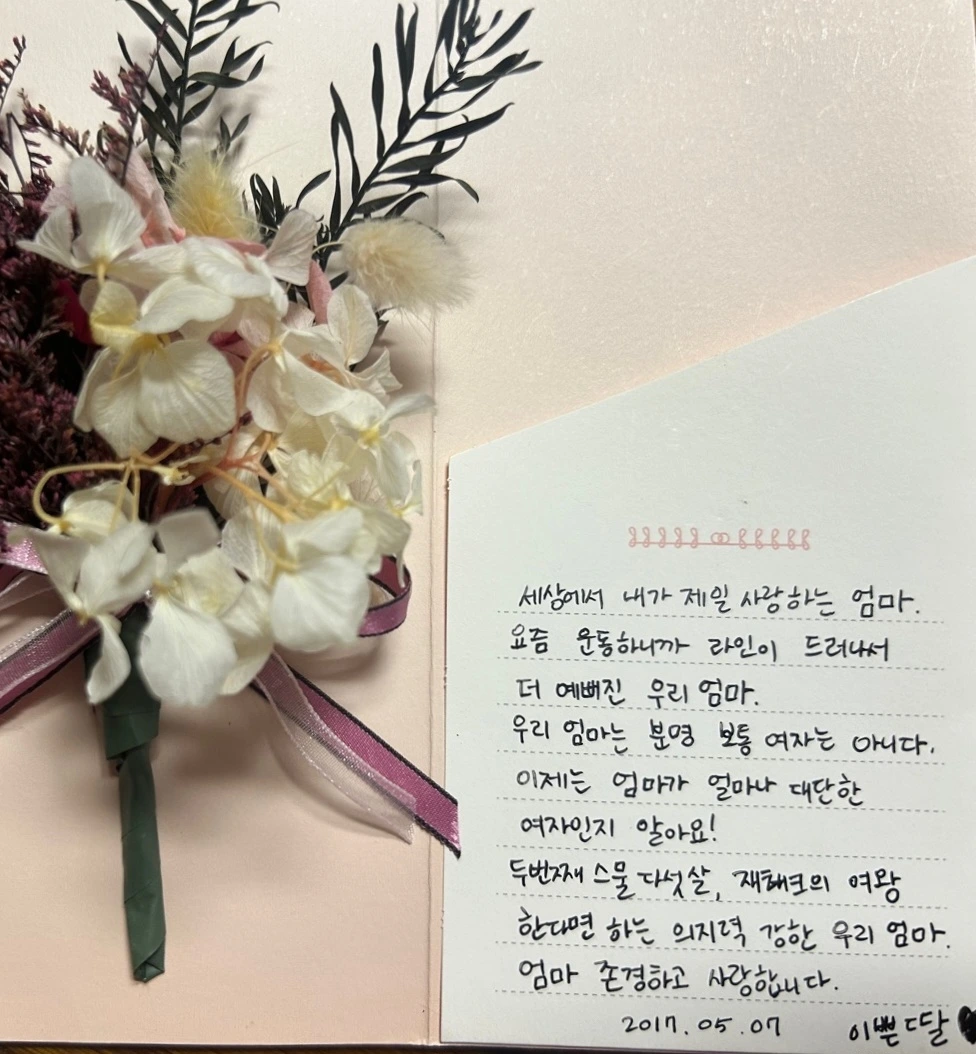 세상에서 내가 제일 사랑하는 엄마.
요즘 운동하니까 라인이 드러나서
더 예뻐진 우리 엄마.
우리 엄마는 분명 보통 여자는 아니다.
이제는 엄마가 얼마나 대단한
여자인지 알아요!
두번째 스물 다섯살, 재테크의 여왕
한다면 하는 의지력 강한 우리 엄마.
엄마 존경하고 사랑합니다.
2017.05.07 이쁜 딸